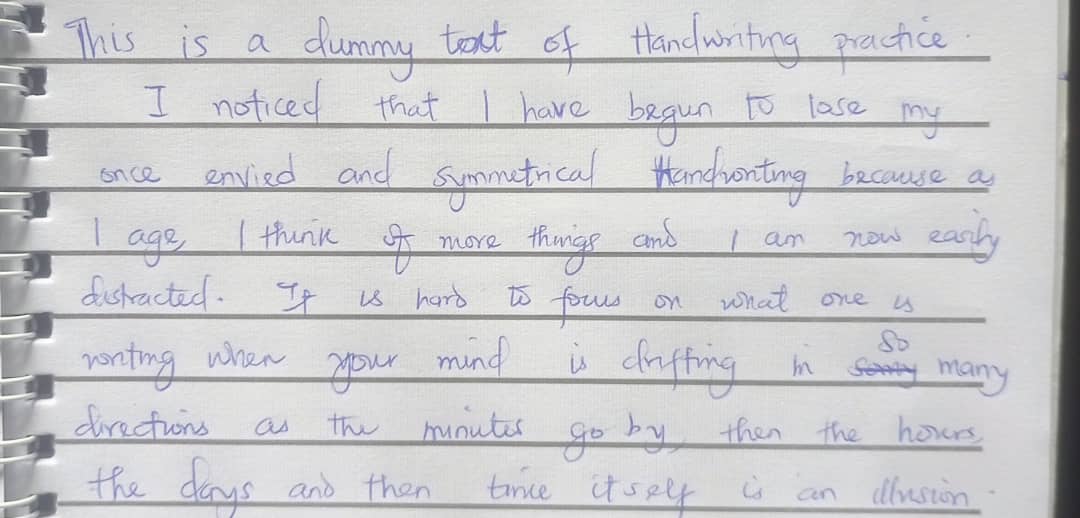 This is a dummy text of Handwriting practice.
I noticed that I have begun to lose my
once envied and symmetrical Handwriting because as
I age, I think of more things and I am now easily
distracted. It is hard to focus on what one is
writing when your mind is drifting in so many
directions as the minutes go by, then the hours,
the days and then time itself is an illusion.